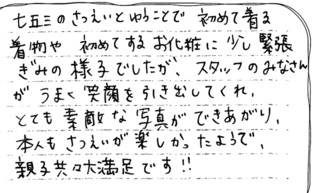 七五三のさつえいとゆうことで 初めて着る
着物や 初めてするお化粧に少し緊張
ぎみの様子でしたが、スタッフのみなさん
が うまく笑顔を引き出してくれ、
とても素敵な写真ができあがり、
本人もさつえいが楽しかったようで、
親子共々大満足です!!